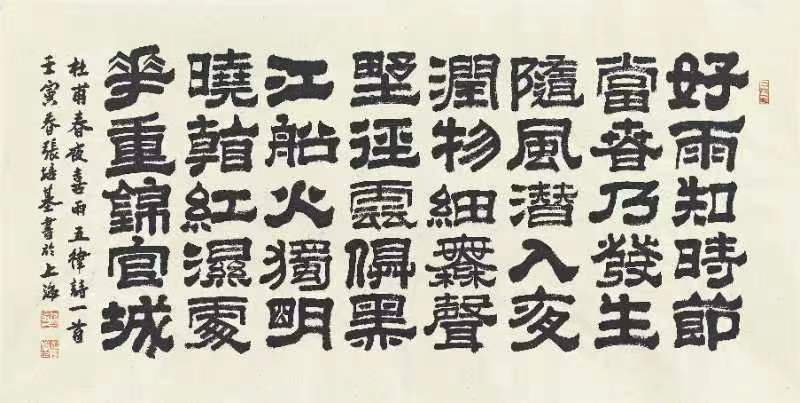 好雨知時節
當春乃發生
隨風潛入夜
潤物細無聲
野徑雲俱黑
江船火獨明
曉看紅濕處
花重錦官城
杜甫春夜喜雨五律詩一首
壬寅春張培基書於上海